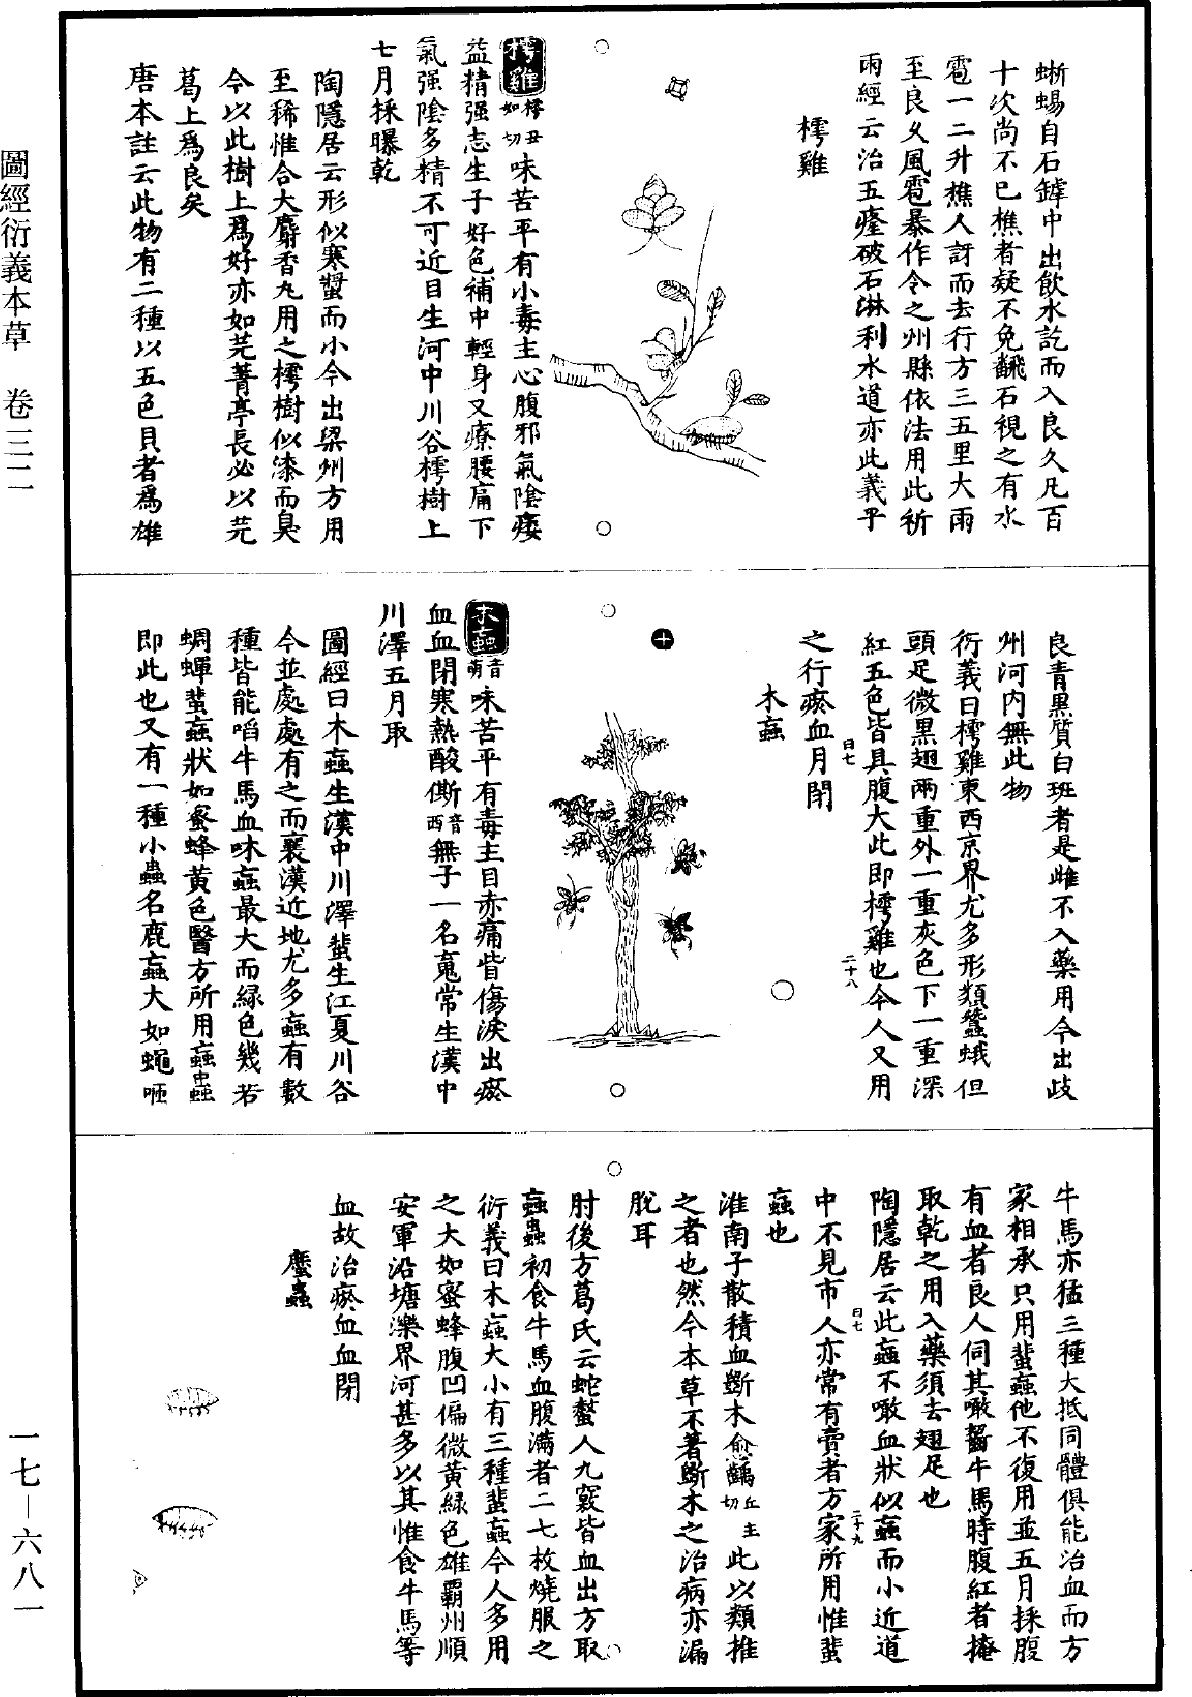 圖經衍義本草　卷三二
一七—六八一
蜥蜴自石罅中出飲水訖而入良久凡百
十次尚不已樵者疑不免翻石視之有水
雹一二升樵人訝而去行方三五里大雨
至良久風雹暴作令之州縣依法用此祈
雨經云治五癃破石淋利水道亦此義乎
樗雞
樗雞樗丑如切味苦平有小毒主心腹邪氣陰痿
益精强志生子好色補中輕身又療腰痛下
氣强陰多精不可近目生河中川谷樗樹上
七月採曝乾
陶隱居云形似寒螿而小今出梁州方用
至稀惟合大麝香丸用之樗樹似漆而臭
今以此樹上爲好亦如芫菁亭長必以芫
葛上爲良矣
唐本註云此物有二種以五色具者爲雄
良青黑質白斑者是雌不入藥用今出歧
州河内無此物
衍義曰樗雞東西京界尤多形類蠶蛾但
頭足微黑翅兩重外一重灰色下一重深
紅五色皆具腹大此即樗雞也今人又用
曰七
二十八
之行瘀血月閉
木蝱
木蝱音萌味苦平有毒主目赤痛眥傷淚出瘀
血血閉寒熱酸㾷音西無子一名䰟常生漢中
川澤五月取
圖經曰木蝱生漢中川澤蜚生江夏川谷
今並處處有之而襄漢近地尤多蝱有數
種皆能㗖牛馬血味蝱最大而緑色幾若
蜩蟬蜚蝱狀如蜜蜂黄色醫方所用蝱蟲
即此也又有一種小蟲名鹿蝱大如蠅咂
牛馬亦猛三種大抵同體俱能治血而方
家相承只用蜚蝱他不復用並五月採腹
有血者良人伺其噉齧牛馬時腹紅者掩
取乾之用入藥須去翅足也
陶隱居云此蝱不噉血狀似蝱而小近道
曰七
二十九
中不見市人亦常有賣者方家所用惟蜚
蝱也
淮南子散積血斷木愈齲丘主切此以類推
之者也然今本草不著斷木之治病亦漏
脫耳
肘後方葛氏云蛇螫人九竅皆血出方取
蝱蟲初食牛馬血腹滿者二七枚燒服之
衍義曰木蝱大小有三種蜚蝱今人多用
之大如蜜蜂腹凹偏微黄緑色雄霸州順
安軍沿塘濼界河甚多以其惟食牛馬等
血故治瘀血血閉
蜚蟲